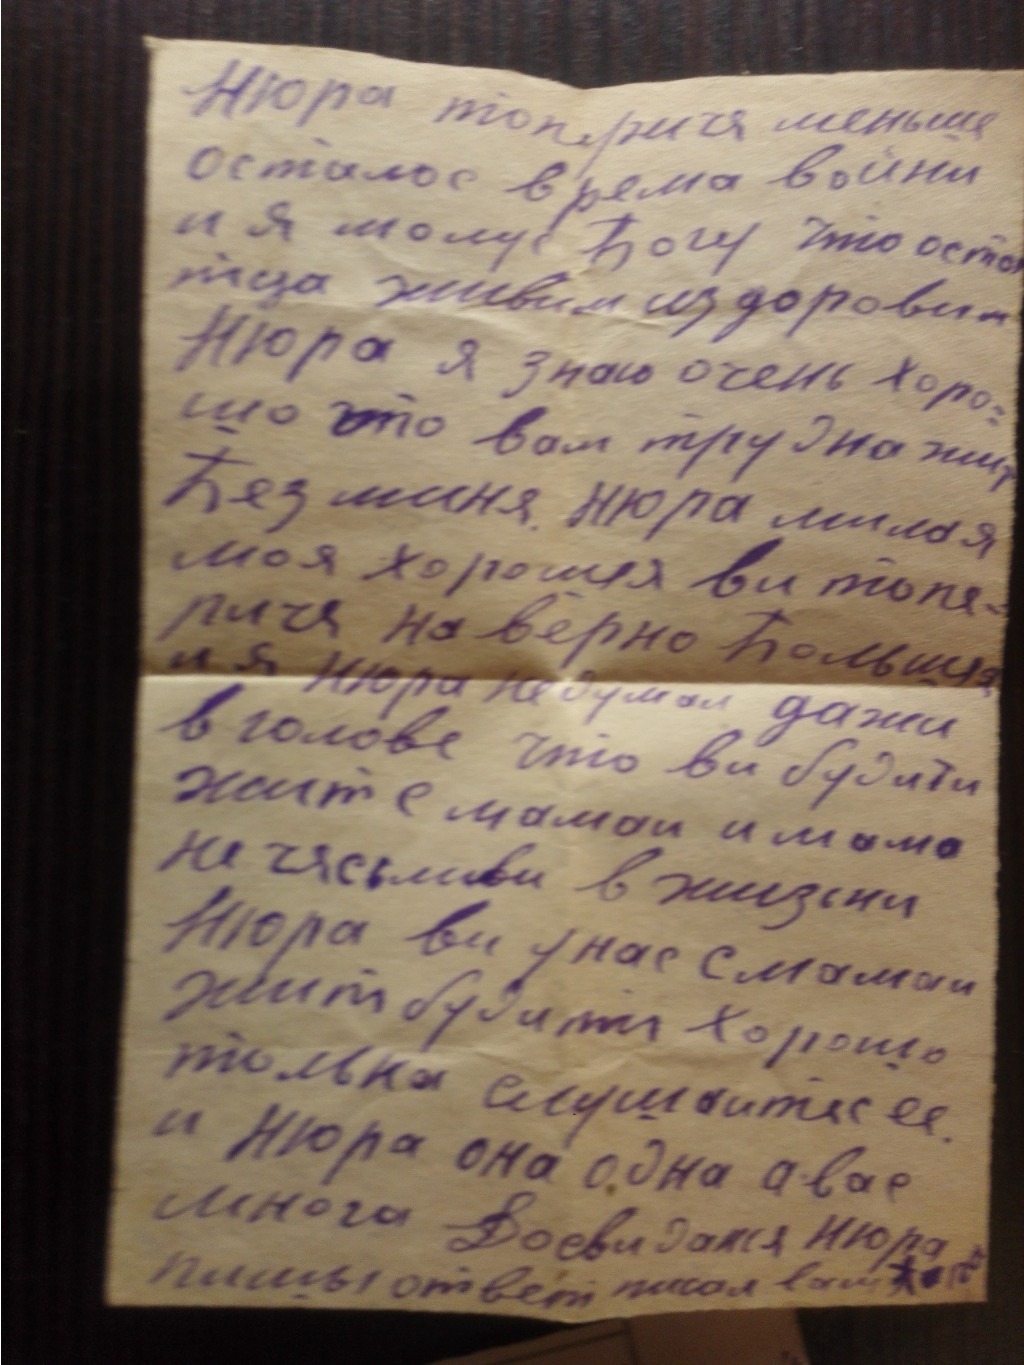 Нюра топеричя меньше
осталос время войни
и я молус Богу что оста
тца живим из доровим
Нюра я знаю очень хоро-
шо что вам трудна жит
Без миня. Нюра милая
моя хорошая ви топе-
ричя наверно Большия
и я Нюра недумал дажи
в голове что ви будити
жит с мамаи и мама
не чясьливи в жизни
Нюра ви унас с мамаи
жить будити хорошо
только слушаитяс ее.
и Нюра она одна а вас
многа Досвидания Нюра
пишы ответ писал вам